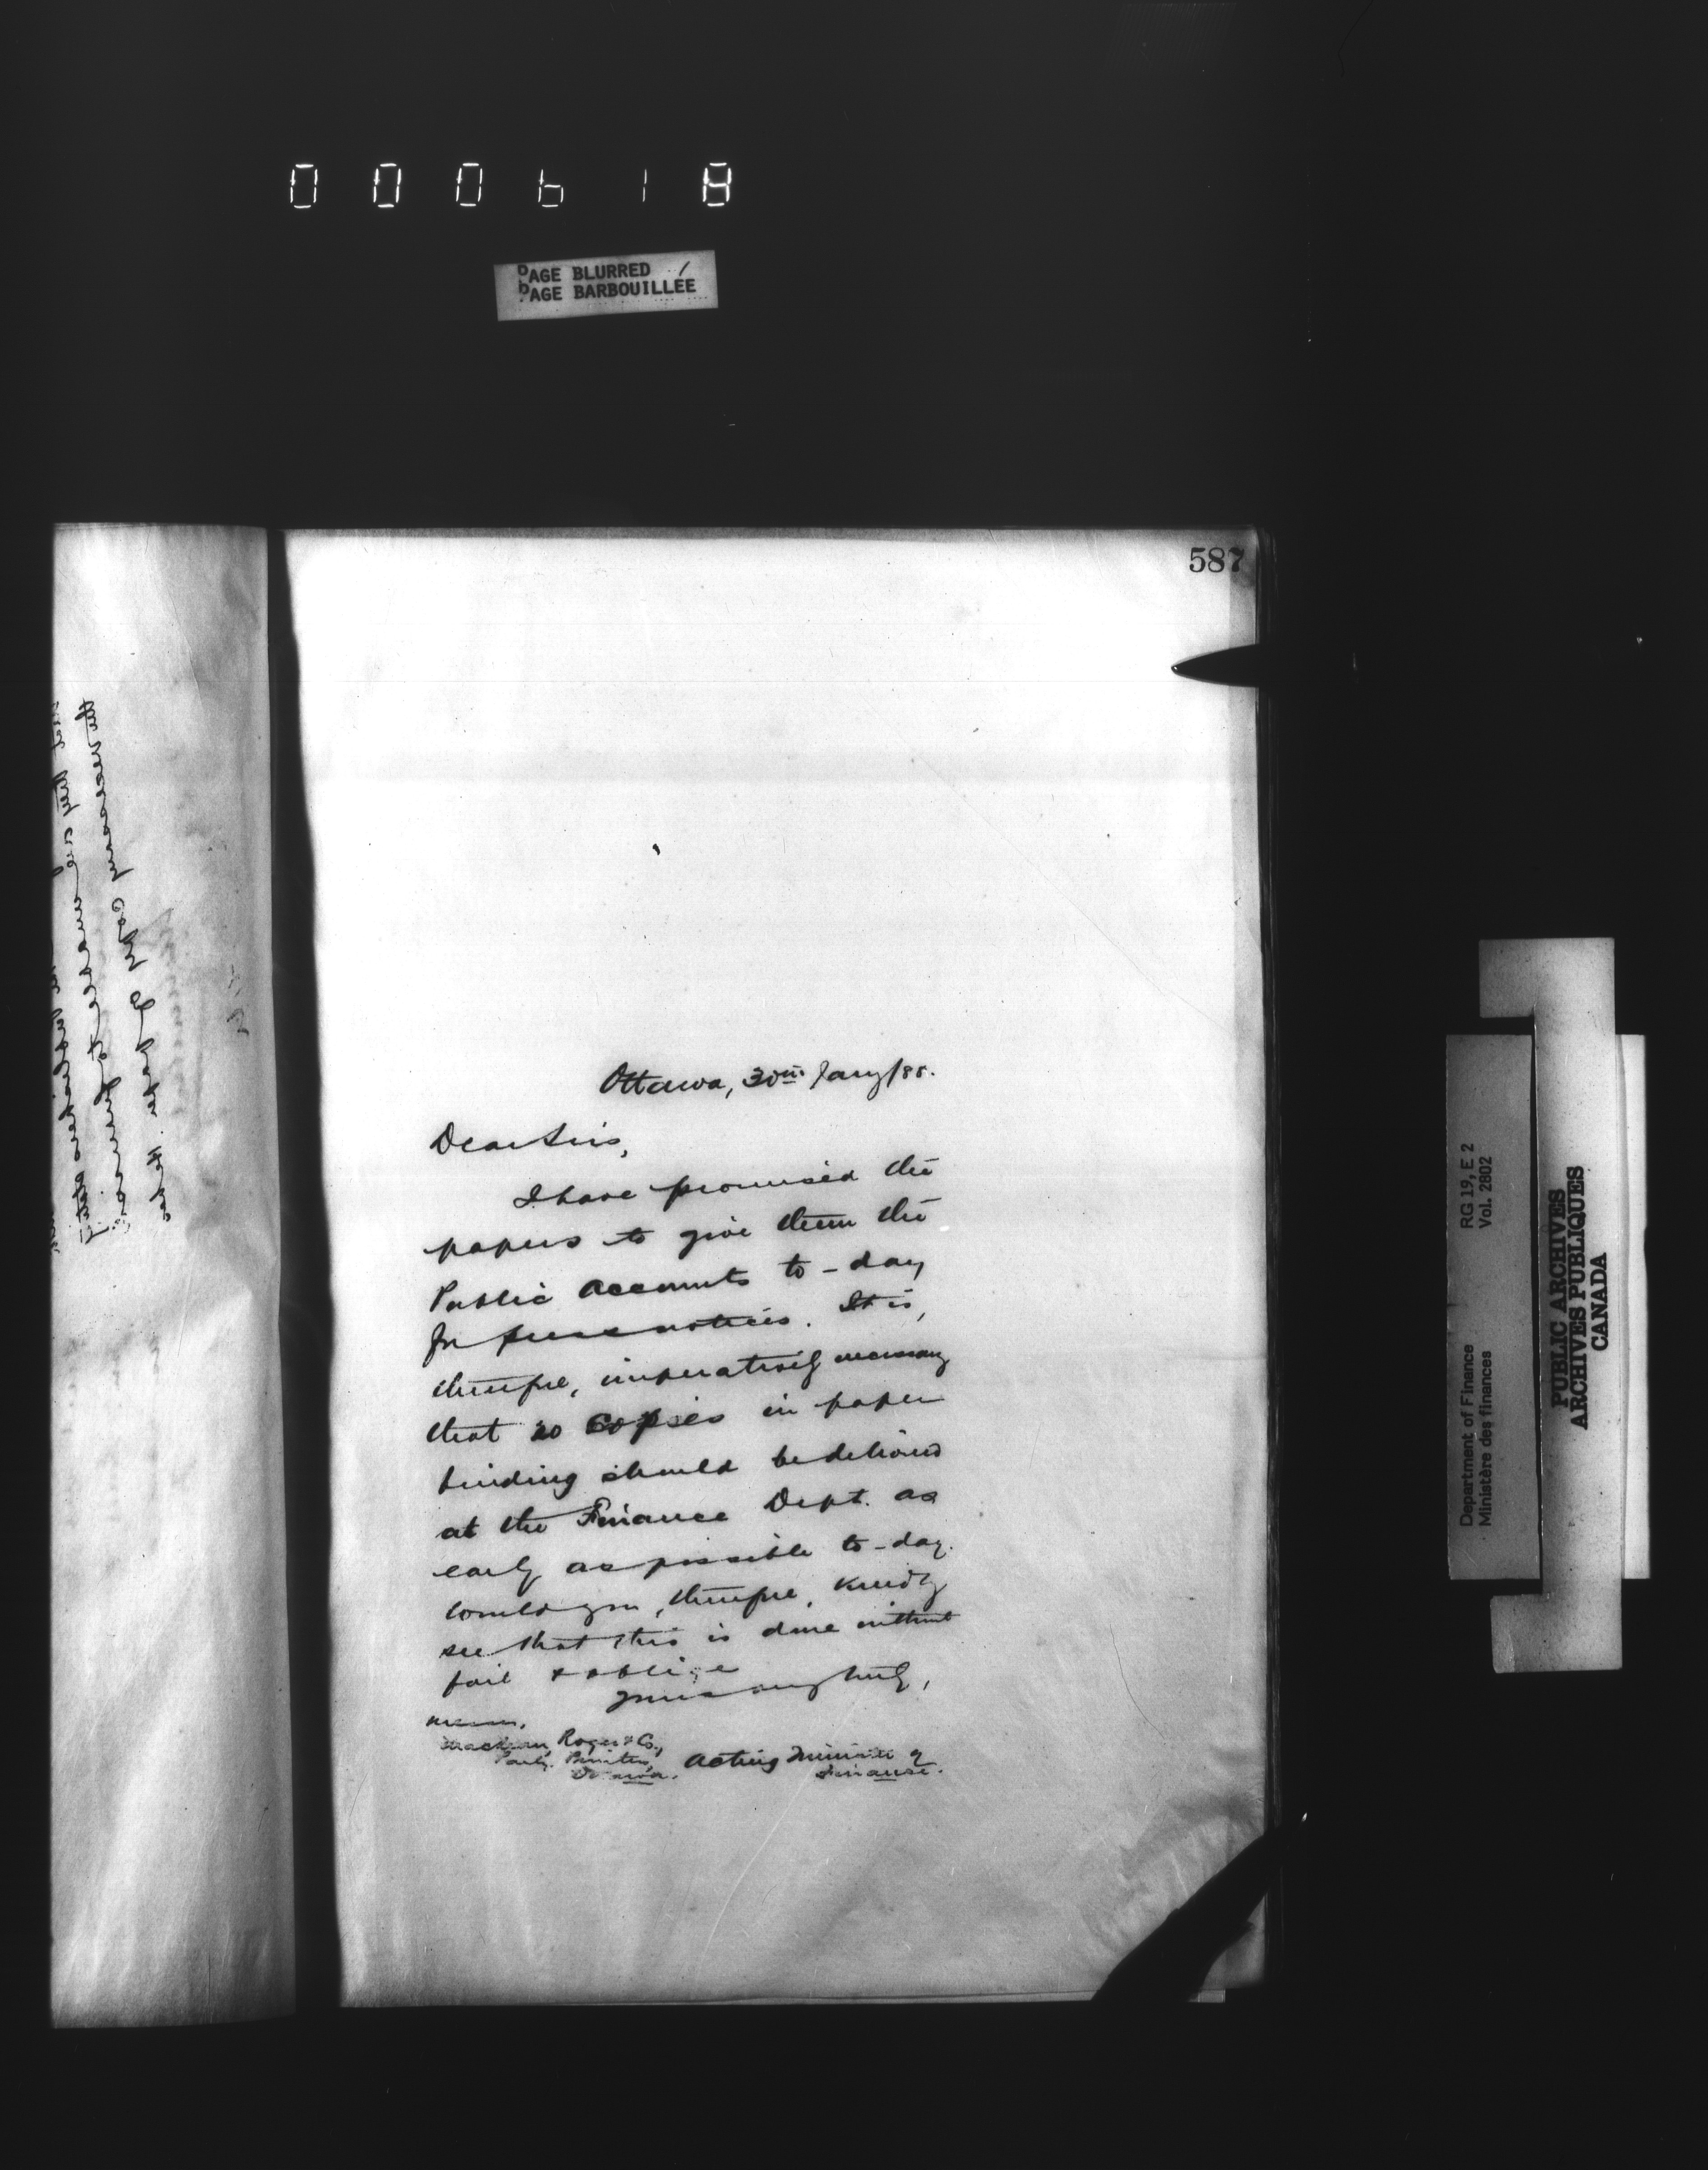 000618
PAGE BLURRED
PAGE BARBOUILLÉE
587
Ottawa, 30th Jany/88.
Dear Sirs,
I have promised the
papers to give them the
Public Accounts to-day
for press notices. It is,
therefore, imperatively necessary
that 20 Copies in paper
binding should be delivered
at the Finance Dept. as
early as possible to-day.
Could you, therefore, kindly
see that this is done without
fail & oblige
Yours very truly,
Messrs.
Maclean, Roger & Co.,
Parly. Printers,
Ottawa.
Acting Minister of
Finance.
the necessary Copy
Department of Finance RG 19, E 2
Ministère des finances Vol. 2802
PUBLIC ARCHIVES
ARCHIVES PUBLIQUES
CANADA